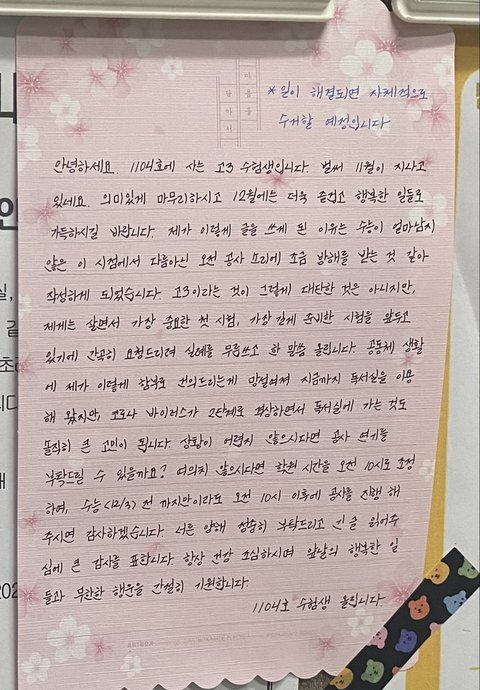 마음을
담아서
*일이 해결되면 자체적으로
수거할 예정입니다
안녕하세요. 1104호에 사는 고3 수험생입니다. 벌써 11월이 지나고
있네요. 의미있게 마무리하시고 12월에는 더욱 즐겁고 행복한 일들로
가득하시길 바랍니다. 제가 이렇게 글을 쓰게 된 이유는 수능이 얼마남지
않은 이 시점에서 다름아닌 오전 공사 소리에 조금 방해를 받는 것 같아
작성하게 되었습니다. 고3이라는 것이 그렇게 대단한 것은 아니지만,
제게는 살면서 가장 중요한 첫 시험, 가장 길게 준비한 시험을 앞두고
있기에 간곡히 요청드리려 실례를 무릅쓰고 한 말씀 올립니다. 공동체 생활
에 제가 이렇게 함부로 건의드리는게 망설여져 지금까지 독서실을 이용
해 왔지만, 코로나 바이러스가 2단계로 격상하면서 독서실에 가는 것도
솔직히 큰 고민이 됩니다. 상황이 어렵지 않으시다면 공사 연기를
부탁드릴 수 있을까요? 여의치 않으시다면 학원 시간을 오전 10시로 조정
하여, 수능(12/3) 전 까지만이라도 오전 10시 이후에 공사를 진행 해
주시면 감사하겠습니다. 너른 양해 정중히 부탁드리고 긴 글 읽어주
심에 큰 감사를 표합니다. 항상 건강 조심하시며 앞날의 행복한 일
들과 무한한 행운을 간절히 기원합니다.
1104호 수험생 올립니다.